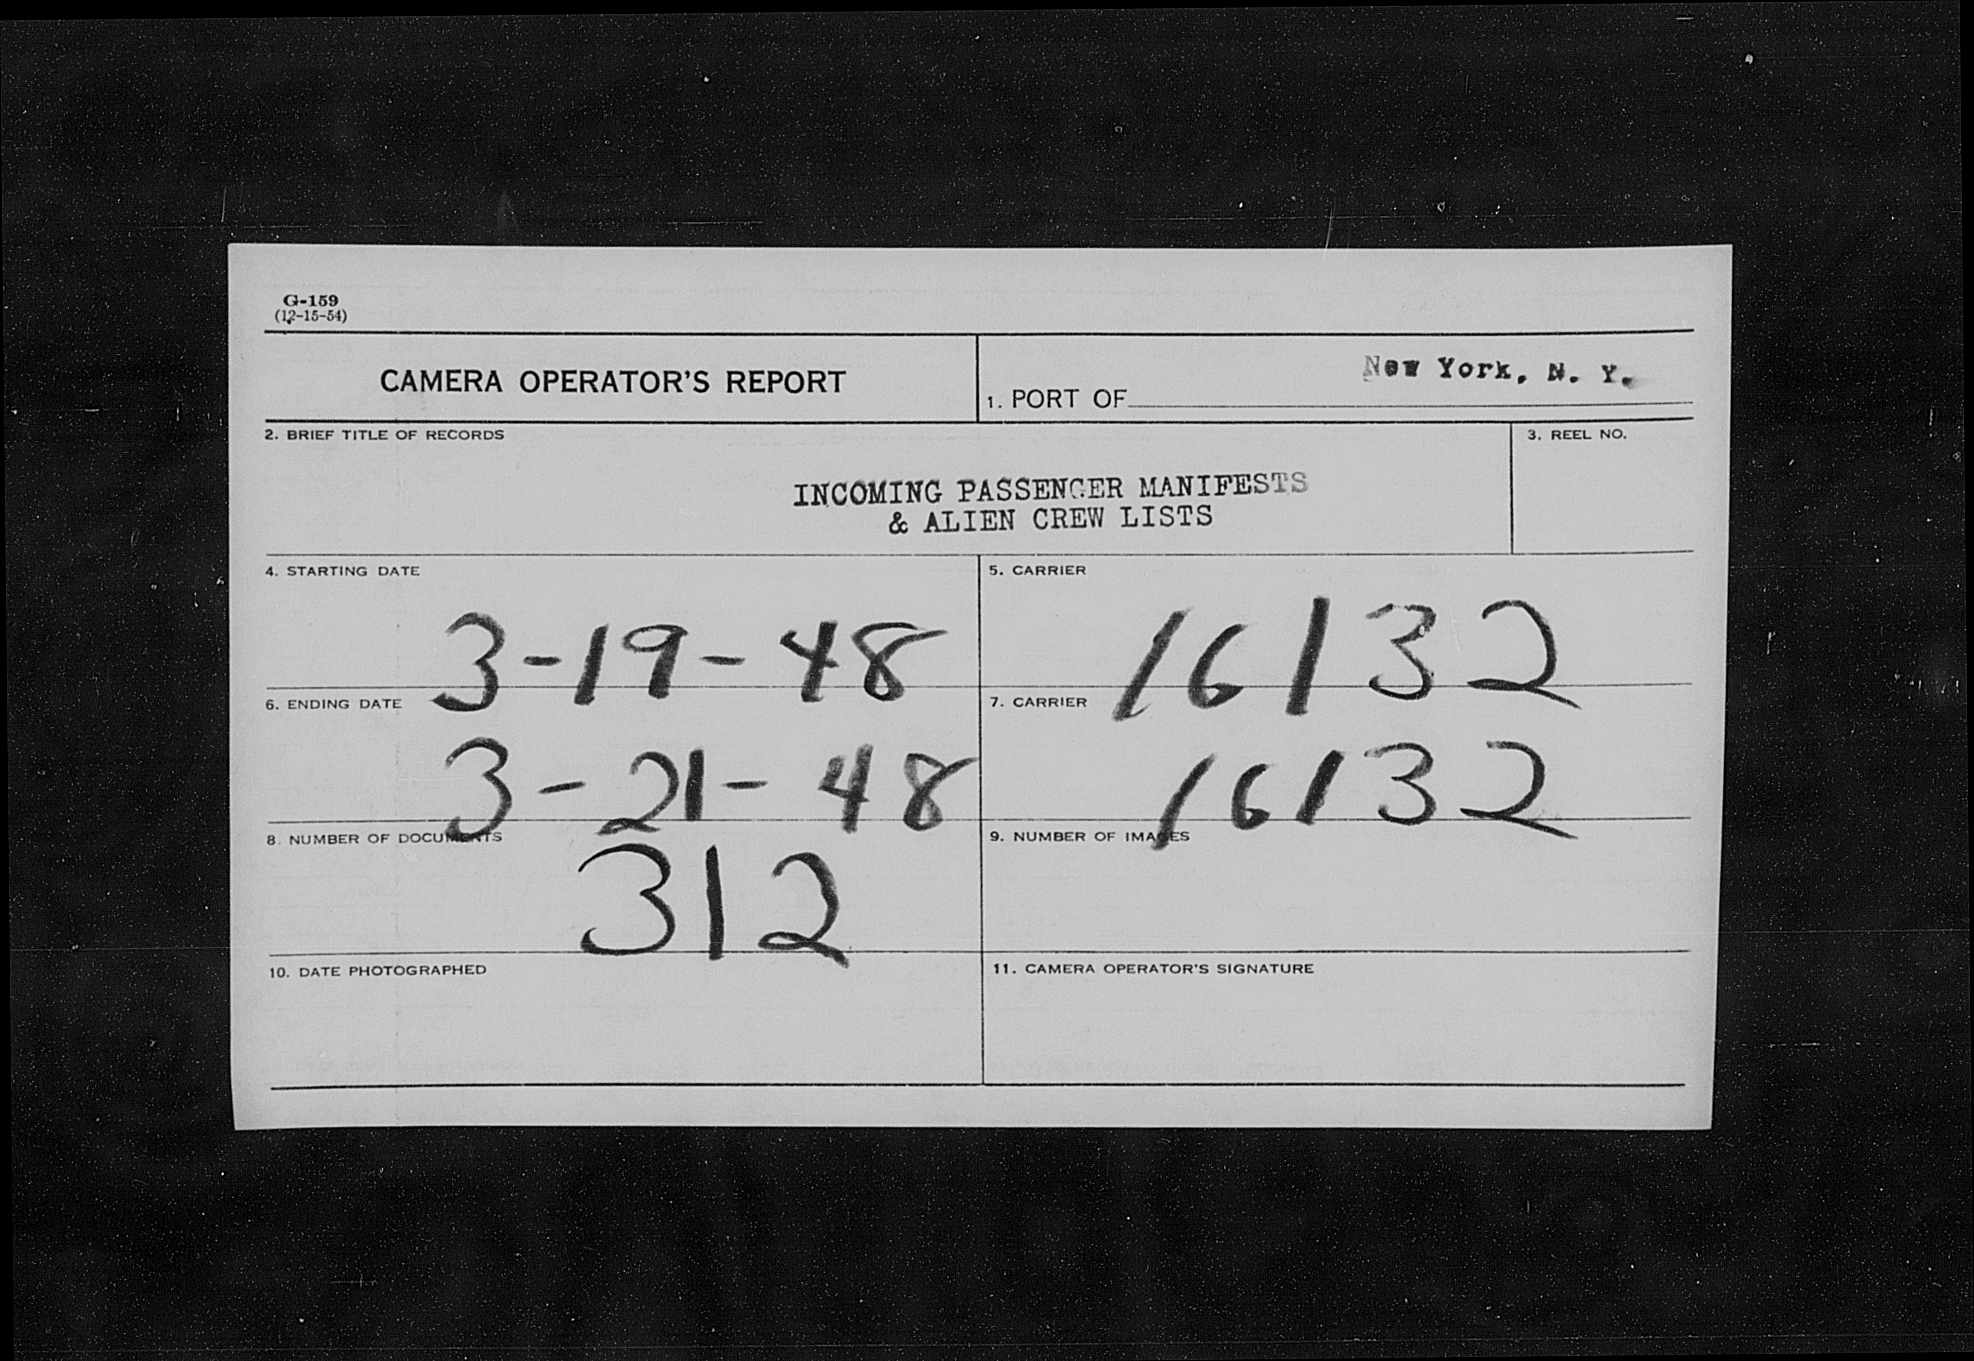 G-159
(12-15-54)
CAMERA OPERATOR'S REPORT
1. PORT OF New York, N. Y.
2. BRIEF TITLE OF RECORDS
INCOMING PASSENGER MANIFESTS
& ALIEN CREW LISTS
3. REEL NO.
4. STARTING DATE
3-19-48
5. CARRIER
16132
6. ENDING DATE
3-21-48
7. CARRIER
16132
8. NUMBER OF DOCUMENTS
312
9. NUMBER OF IMAGES
10. DATE PHOTOGRAPHED
11. CAMERA OPERATOR'S SIGNATURE